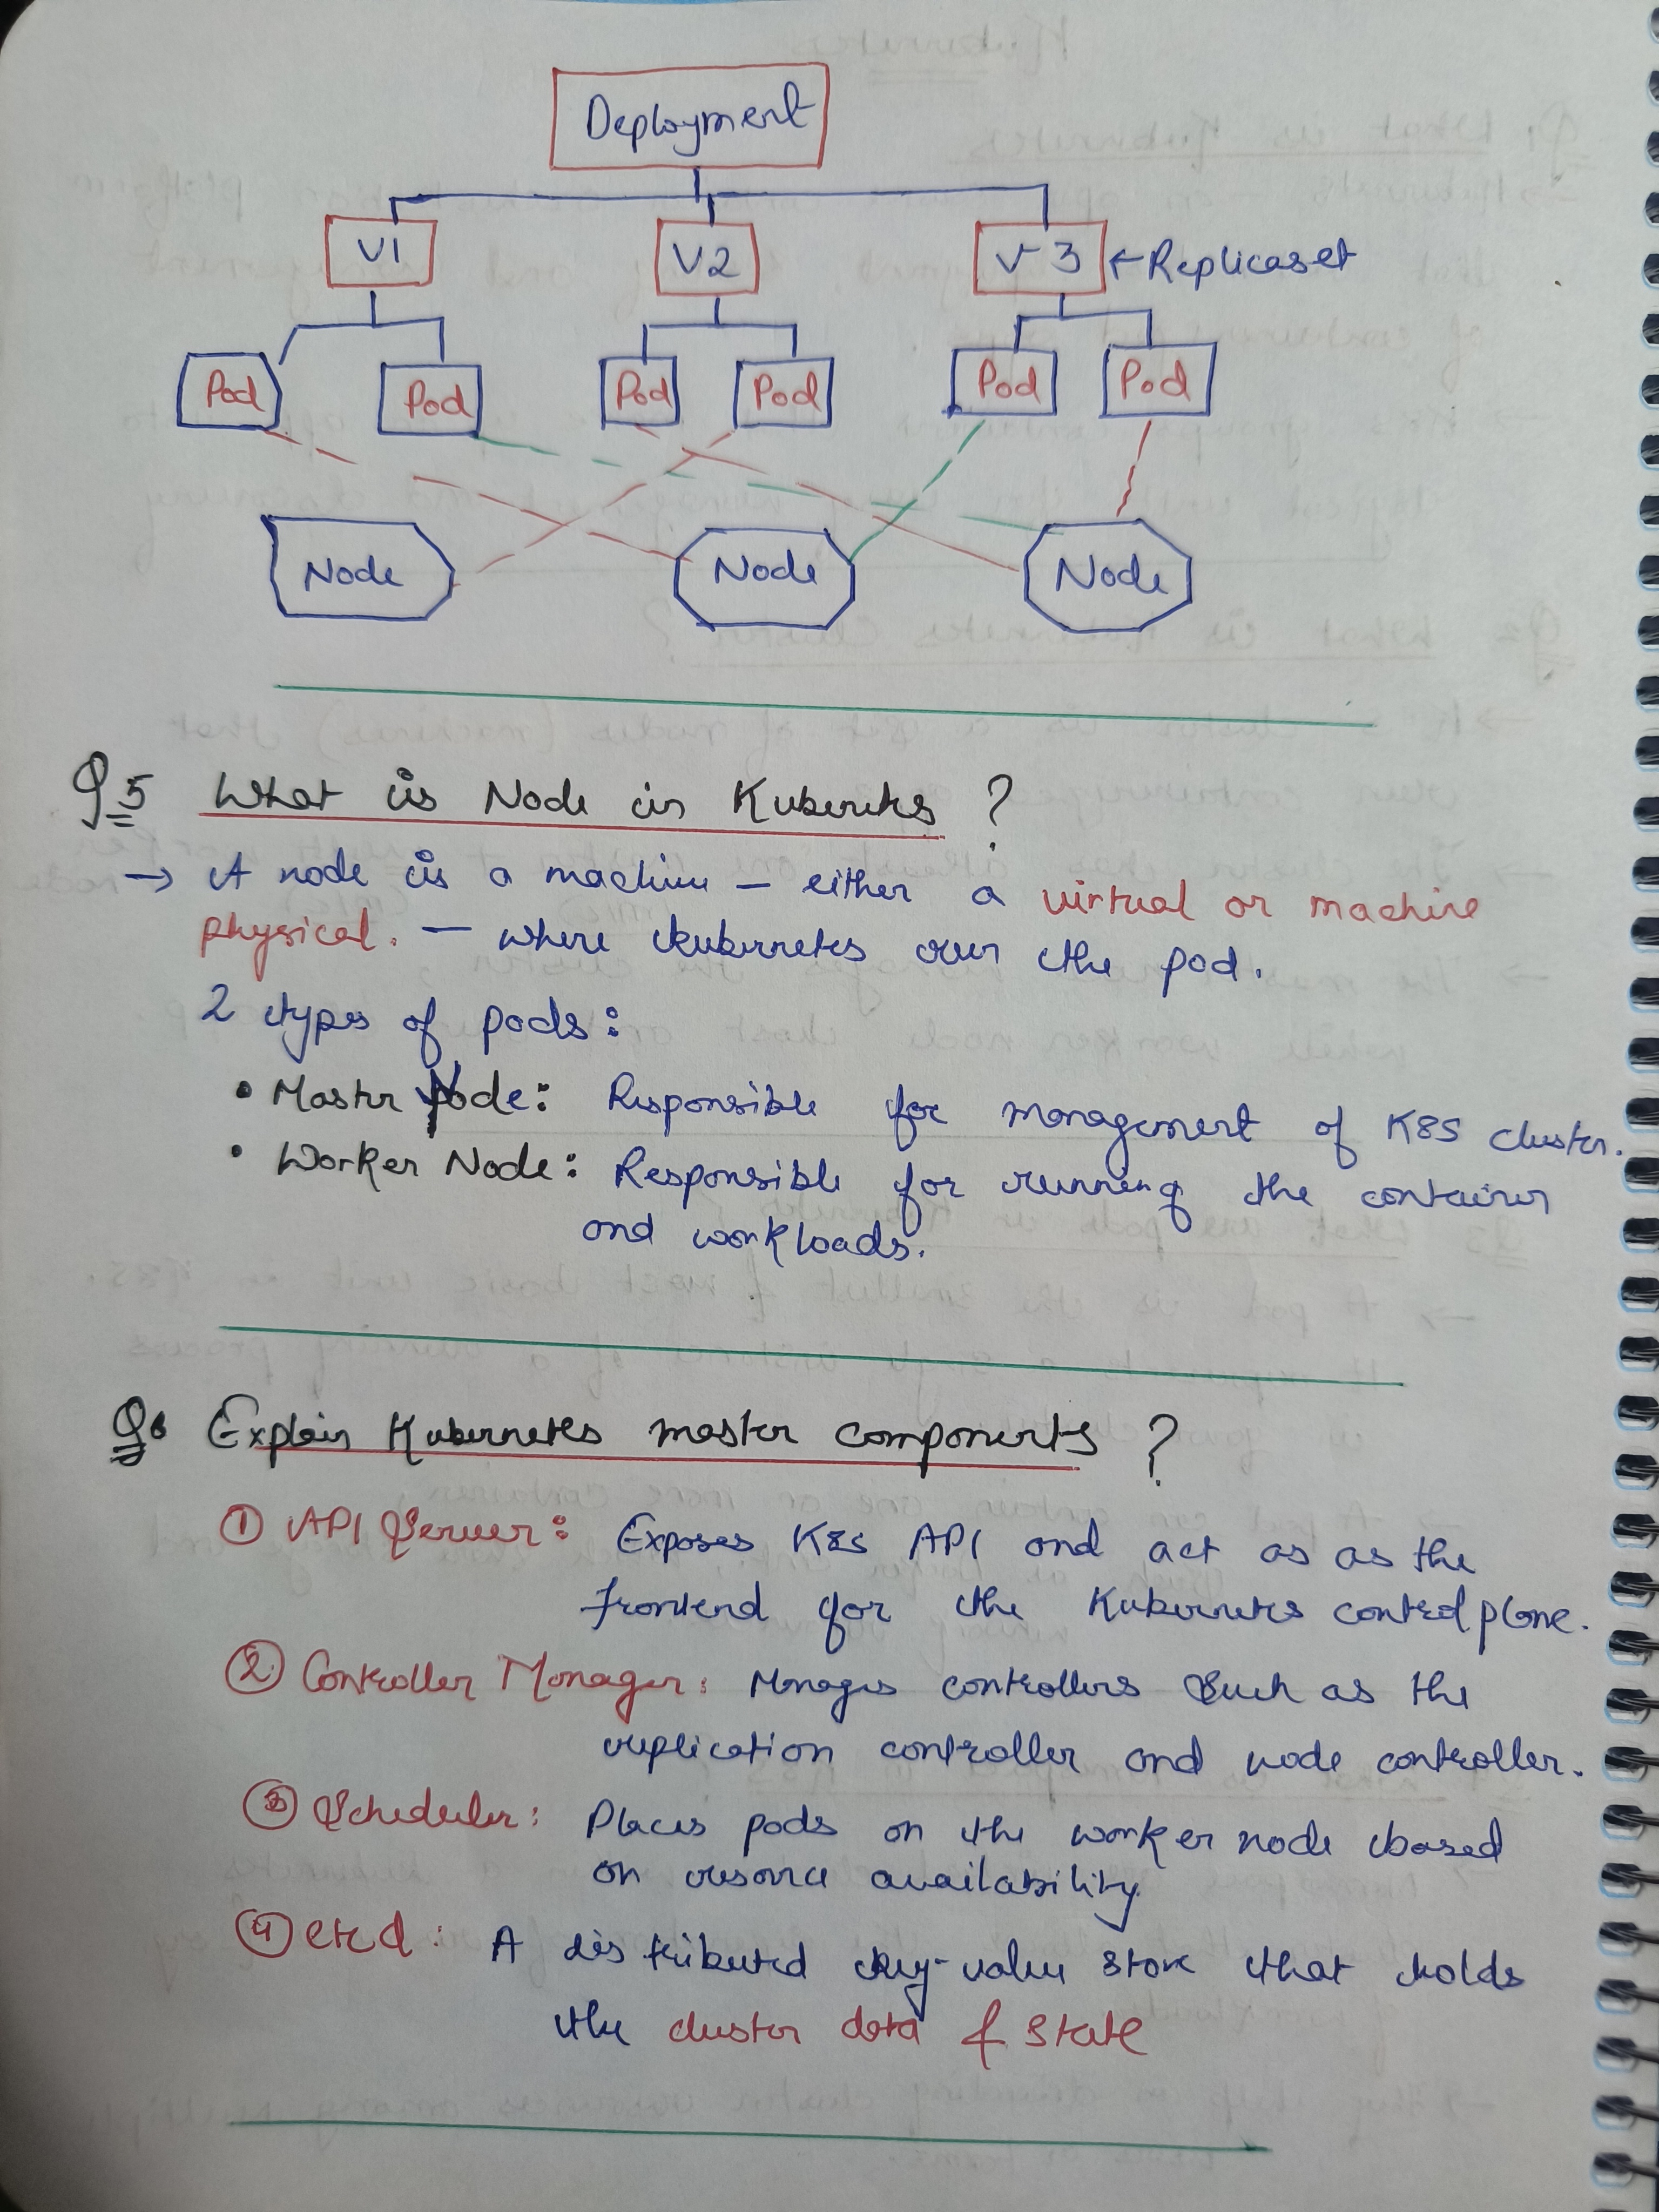 Deployment
V1 V2 V3 ←Replicaset
Pod Pod Pod Pod Pod Pod
Node Node Node
Q5 What is Node in Kubernetes ?
→ A node is a machine – either a virtual or machine
physical. – where kubernetes run the pod.
2 types of pods:
• Master Node: Responsible for management of K8S cluster.
• Worker Node: Responsible for running the container
and workloads.
Q6 Explain Kubernetes master components ?
① API Server: Exposes K8s API and act as as the
frontend for the Kubernetes control plane.
② Controller Manager: Manages controllers such as the
replication controller and node controller.
③ Scheduler: Places pods on the worker node based
on resource availability.
④ etcd: A distributed key-value store that holds
the cluster data & state